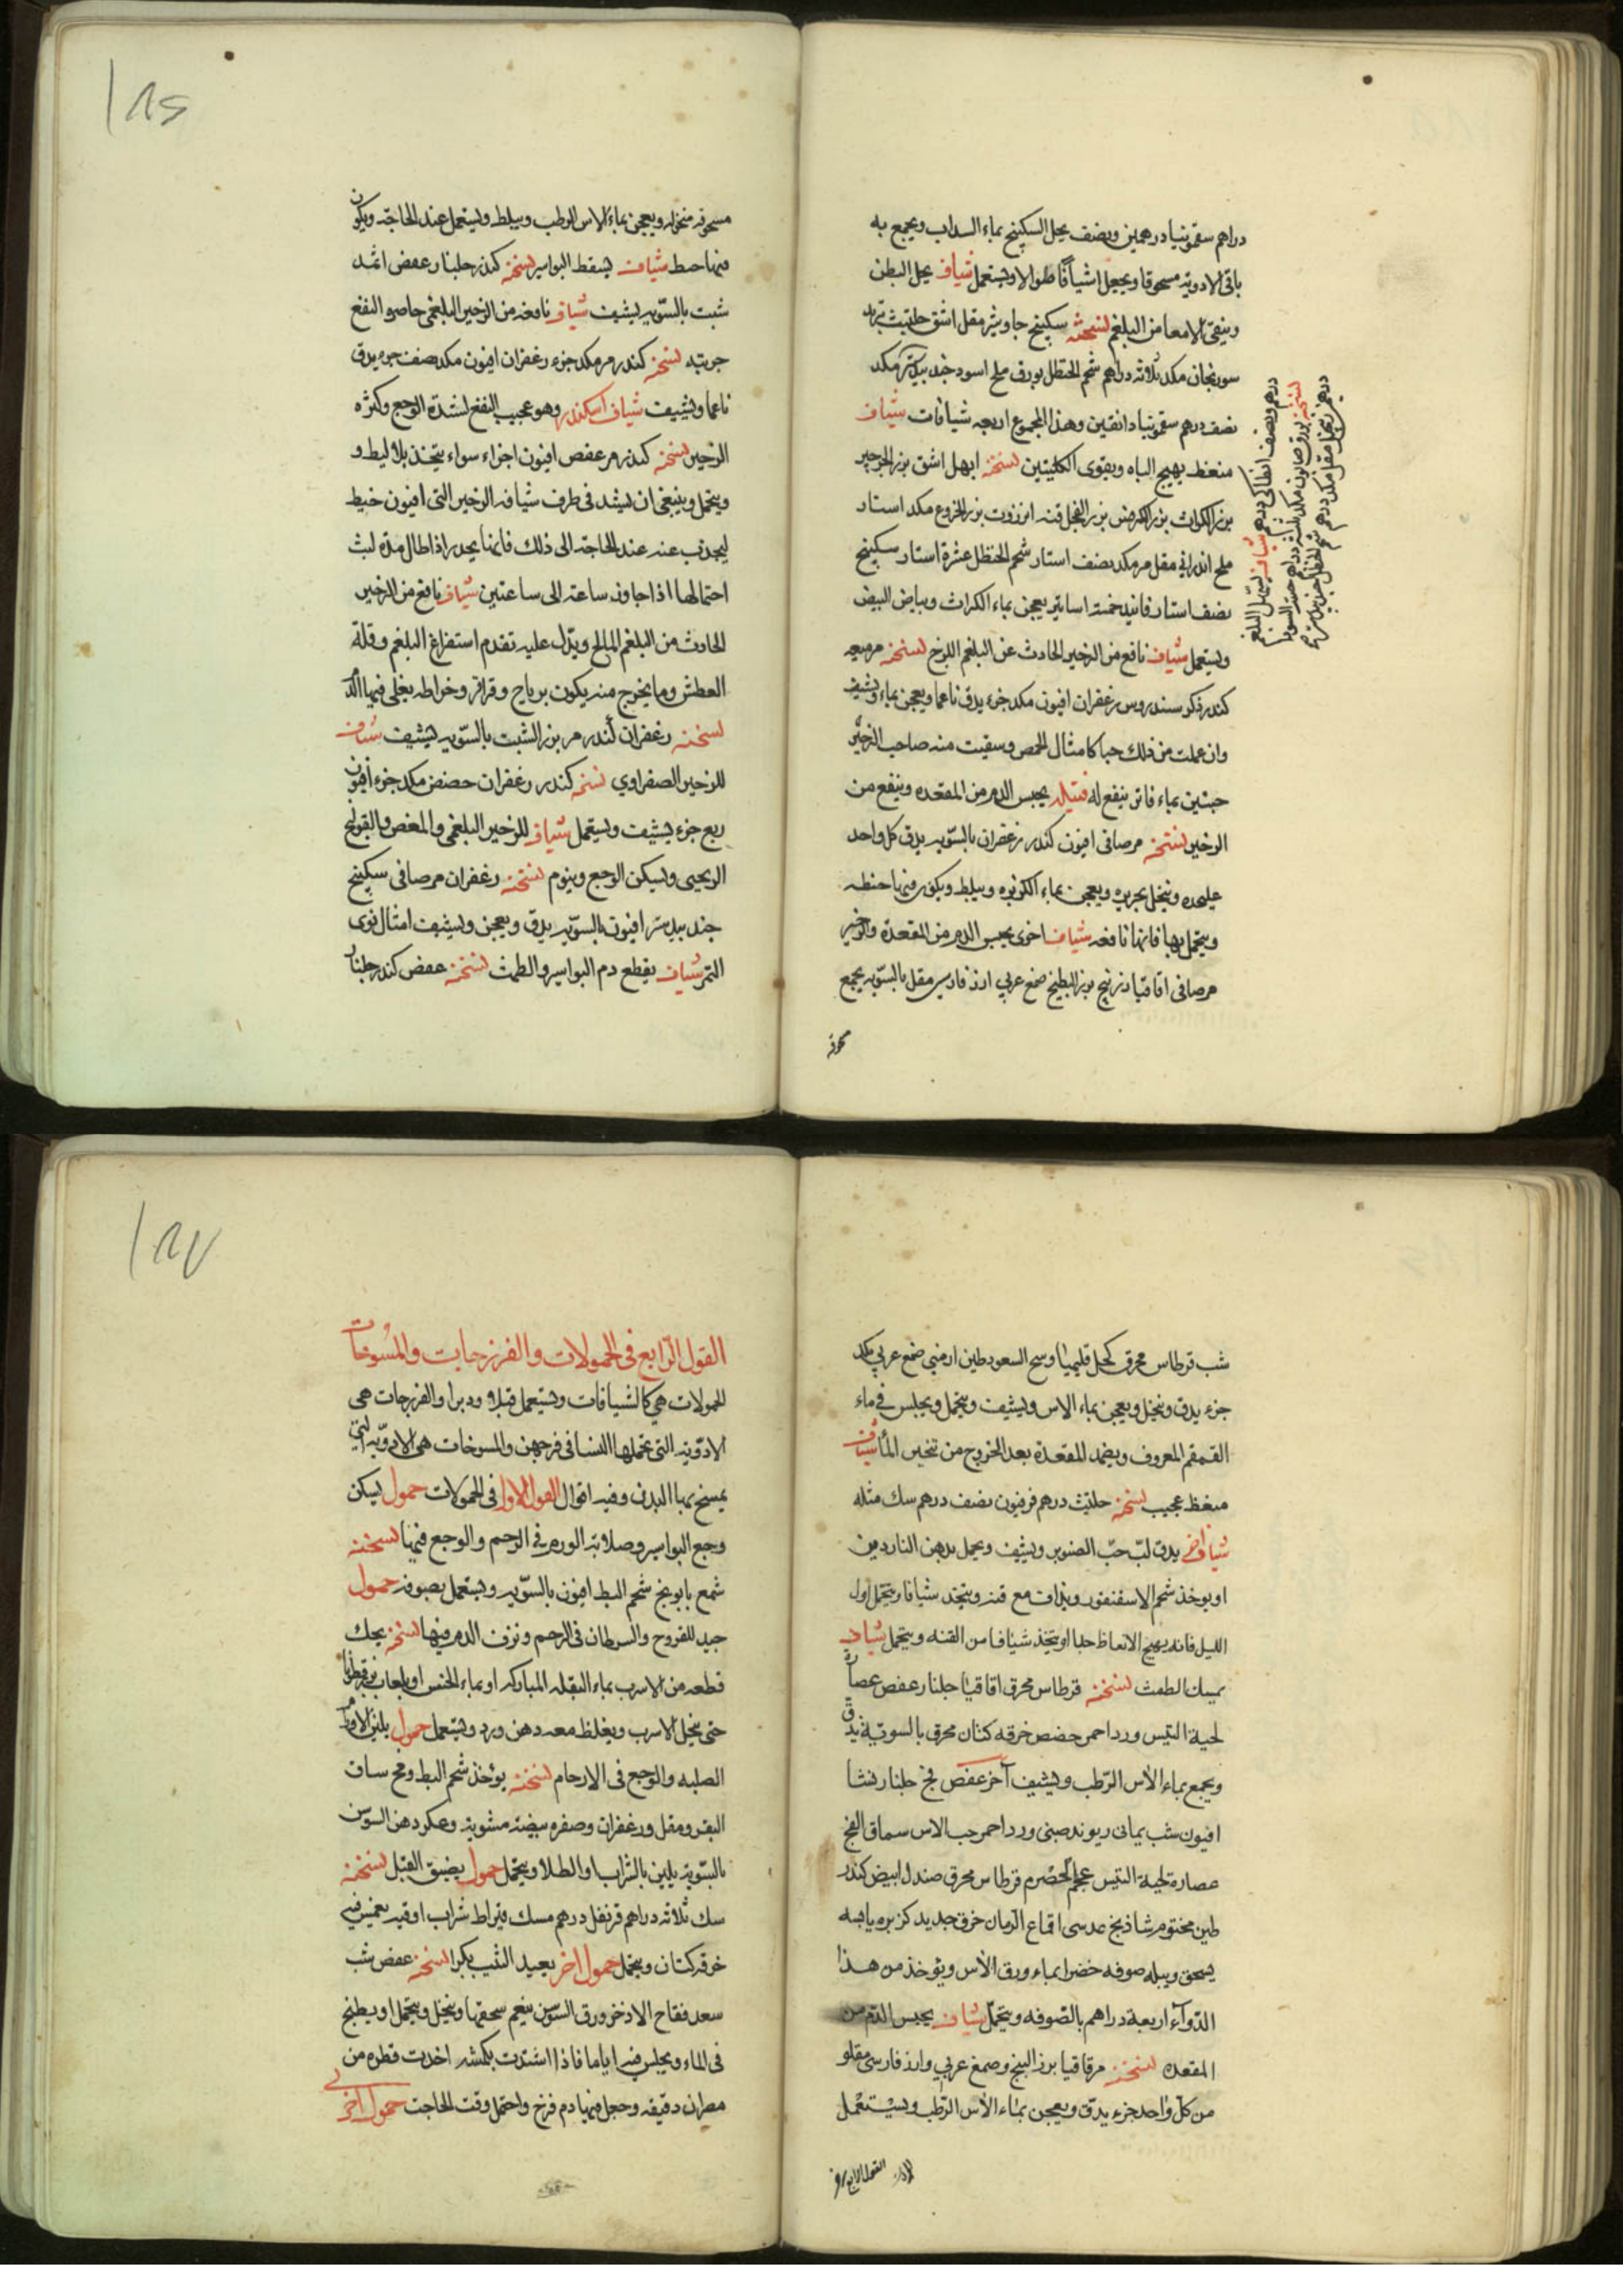 دراهم سقمونيا درهمين ونصف يحل السكبينج بماء السداب ويجمع به
باقى الادويه مسحوقا ويجعل اشيافا طوالا ويستعمل شياف يحل البطن
وينقى الامعا من البلغم نسخته سكبينج جاوشير مقل اشق حلتيت تربد
سورنجان مكد ثلاثه دراهم شحم الحنظل بورق ملح اسود جند بيدستر مكد
نصف درهم سقمونيا دانقين وهذا المجموع اربعه شيافات شياف
منعظ يهيج الباه ويقوى الكليتين نسخته ابهل اشق بزر الجرجير
بزر الكراث بزر الكرفس بزر الفجل قنه انزروت بزر الخروع مكد استار
ملح اندرانى مقل مر مكد نصف استار شحم الحنظل عشرة استار سكبينج
نصف استار فانيد خمسة اساتير يعجن بماء الكراث وبياض البيض
ويستعمل شياف نافع من الزحير الحادث عن البلغم اللزج نسخته مر ميعه
كندر ذكر سندروس زعفران افيون مكد جزء يدق ناعما ويعجن بماء ويشيف
وان عملت من ذلك حبا كامثال الحمص وسقيت منه صاحب الزحير
حبتين بماء فاتر ينفع له فتيله يحبس الدم من المقعده وينفع من
الزحير نسخته مر صافى افيون كندر زعفران بالسويه يدق كل واحد
عليحده وينخل بحريره ويعجن بماء الكزبره ويبلط ويكون فيها خيط
ويتحمل بها فانها نافعه شياف اخرى يحبس الدم من المقعدة والزحير
مر صافى اقاقيا بزر بنج بزر البطيخ صمغ عربي ارز فارسى مقلى بالسويه يجمع
درهم ونصف انطاكى درهم شياف يسهل البلغم
نسخته بورق صابون مكد ثلثه دراهم
درهم زنجبيل مقل مكد درهم شحم الحنظل
مسحوقه منخوله ويعجن بماء الاس الرطب ويبلط ويستعمل عند الحاجة ويكون
فيها خيط شياف يسقط البواسير نسخته كندر جلنار عفص اثمد
شبت بالسويه يشيف شياف نافعه من الزحير البلغمى حاضر النفع
جربته نسخته كندر مر مكد جزء زعفران افيون مكد نصف جزء يدق
ناعما ويشيف شياف اسكندر وهو عجيب النفع لشدة الوجع وكثره
الزحير نسخته كندر مر عفص افيون اجزاء سواء يتخذ بلاليط و
ويتحمل وينبغى ان يشد فى طرف شيافه الزحير التى افيون خيط
ليجذب عنه عند الحاجة الى ذلك فانها يحدر اذا طال مدة لبث
احتمالها اذا جاوز ساعة الى ساعتين شياف نافع من الزحير
الحادث من البلغم المالح ويدل عليه تقدم استفراغ البلغم وقلة
العطش وما يخرج منه يكون برياح وقراقر وخراطه يغلى فيها الد
نسخته زعفران كندر مر بزر الشبت بالسويه يشيف شياف
للزحير الصفراوي نسخه كندر زعفران حضض مكد جزء افيون
ربع جزء يشيف ويستعمل شياف للزحير البلغمى والمغص والقولنج
الريحى ويسكن الوجع وينوم نسخته زعفران مر صافى سكبينج
جند بيدستر افيون بالسويه يدق ويعجن ويشيف امثال نوى
التمر شياف يقطع دم البواسير والطمث نسخته عفص كندر جلنار
شب قرطاس محرق كحل اقليميا وسح السعود طين ارمنى صمغ عربي مكد
جزء يدق وينخل ويعجن بماء الاس ويشيف ويتحمل ويجلس فى ماء
القمقم المعروف ويضمد المقعدة بعد الخروج من تبخير الماء شياف
منعظ عجيب نسخته حلتيت درهم فرفيون نصف درهم سك مثله
شياف اخر يدق لب حب الصنوبر ويشيف ويحمل بدهن الناردين
او يوخذ شحم الاسقنقور ويذاف مع قنه ويتخذ شيافا ويتحمل اول
الليل فانه يهيج الانعاظ جدا او يتخذ شيافا من القنه ويتحمل شياف
يمسك الطمث نسخته قرطاس محرق اقاقيا جلنار عفص عصارة
لحية التيس ورد احمر حضض خرقه كتان محرق بالسوية يدق
ويجمع بماء الاس الرطب ويشيف آخر عفص فج جلنار نشا
افيون شب يمانى ريوند صينى ورد احمر حب الاس سماق الفج
عصارة لحية التيس عجم الحصرم قرطاس محرق صندل ابيض كندر
طين مختوم شاذنج عدسى اقماع الرمان خزف جديد كزبره يابسه
يسحق ويبله صوفه خضرا بماء ورق الاس ويؤخذ من هذا
الدواء اربعة دراهم بالصوفه ويتحمل شياف يحبس الدم من
المقعده نسخته مر قاقيا بزر البنج وصمغ عربي وارز فارسى مقلو
من كل واحد جزء يدق ويعجن بماء الاس الرطب ويستعمل
القول الرابع فى الحمولات والفرزجات والمسوحات
الحمولات هى كالشيافات ويستعمل قبلا ودبرا والفرزجات هى
الادوية التى تحملها النسا فى فرجهن والمسوحات هى الادويه التى
يمسح بها البدن وفيه اقوال القول الاول فى الحمولات حمول يسكن
وجع البواسير وصلابة الورم فى الرحم والوجع فيها نسخته
شمع بابونج شحم البط افيون بالسويه ويستعمل بصوفه حمول
جيد للقروح والسرطان فى الرحم ونزف الدم فيها نسخته يحك
قطعه من الاسرب بماء البقله المباركه او بماء الخس او بلعاب بزرقطونا
حتى ينحل الاسرب ويغلظ معه دهن ورد ويستعمل حمول يلين الاورام
الصلبه والوجع فى الارحام نسخته يؤخذ شحم البط ومخ ساق
البقر ومقل وزعفران وصفره بيضة مشوية وعكر دهن السوسن
بالسوية يلين بالشراب او الطلا ويتحمل حمول يضيق القبل نسخته
سك ثلاثه دراهم قرنفل درهم مسك قيراط شراب اوقيه يغمس فيه
خرقه كتان ويتحمل حمول اخر يعيد الثيب بكرا نسخته عفص شب
سعد فقاح الاذخر ورق السوسن ينعم سحقها وينخل ويتحمل او يطبخ
فى الماء ويجلس فيه اياما فاذا اشتدت اخذت قطره من
مصران دقيقه وجعل فيها دم فرخ واحتمل وقت الحاجت حمول اخر